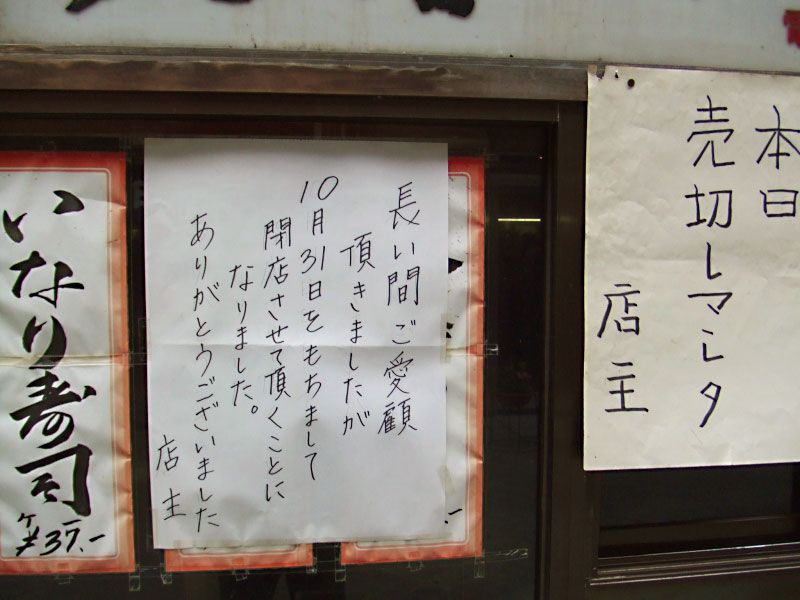 本日
売切レマシタ
店主
長い間ご愛顧
頂きましたが
10月31日をもちまして
閉店させて頂くことに
なりました。
ありがとうございました
店主
いなり寿司